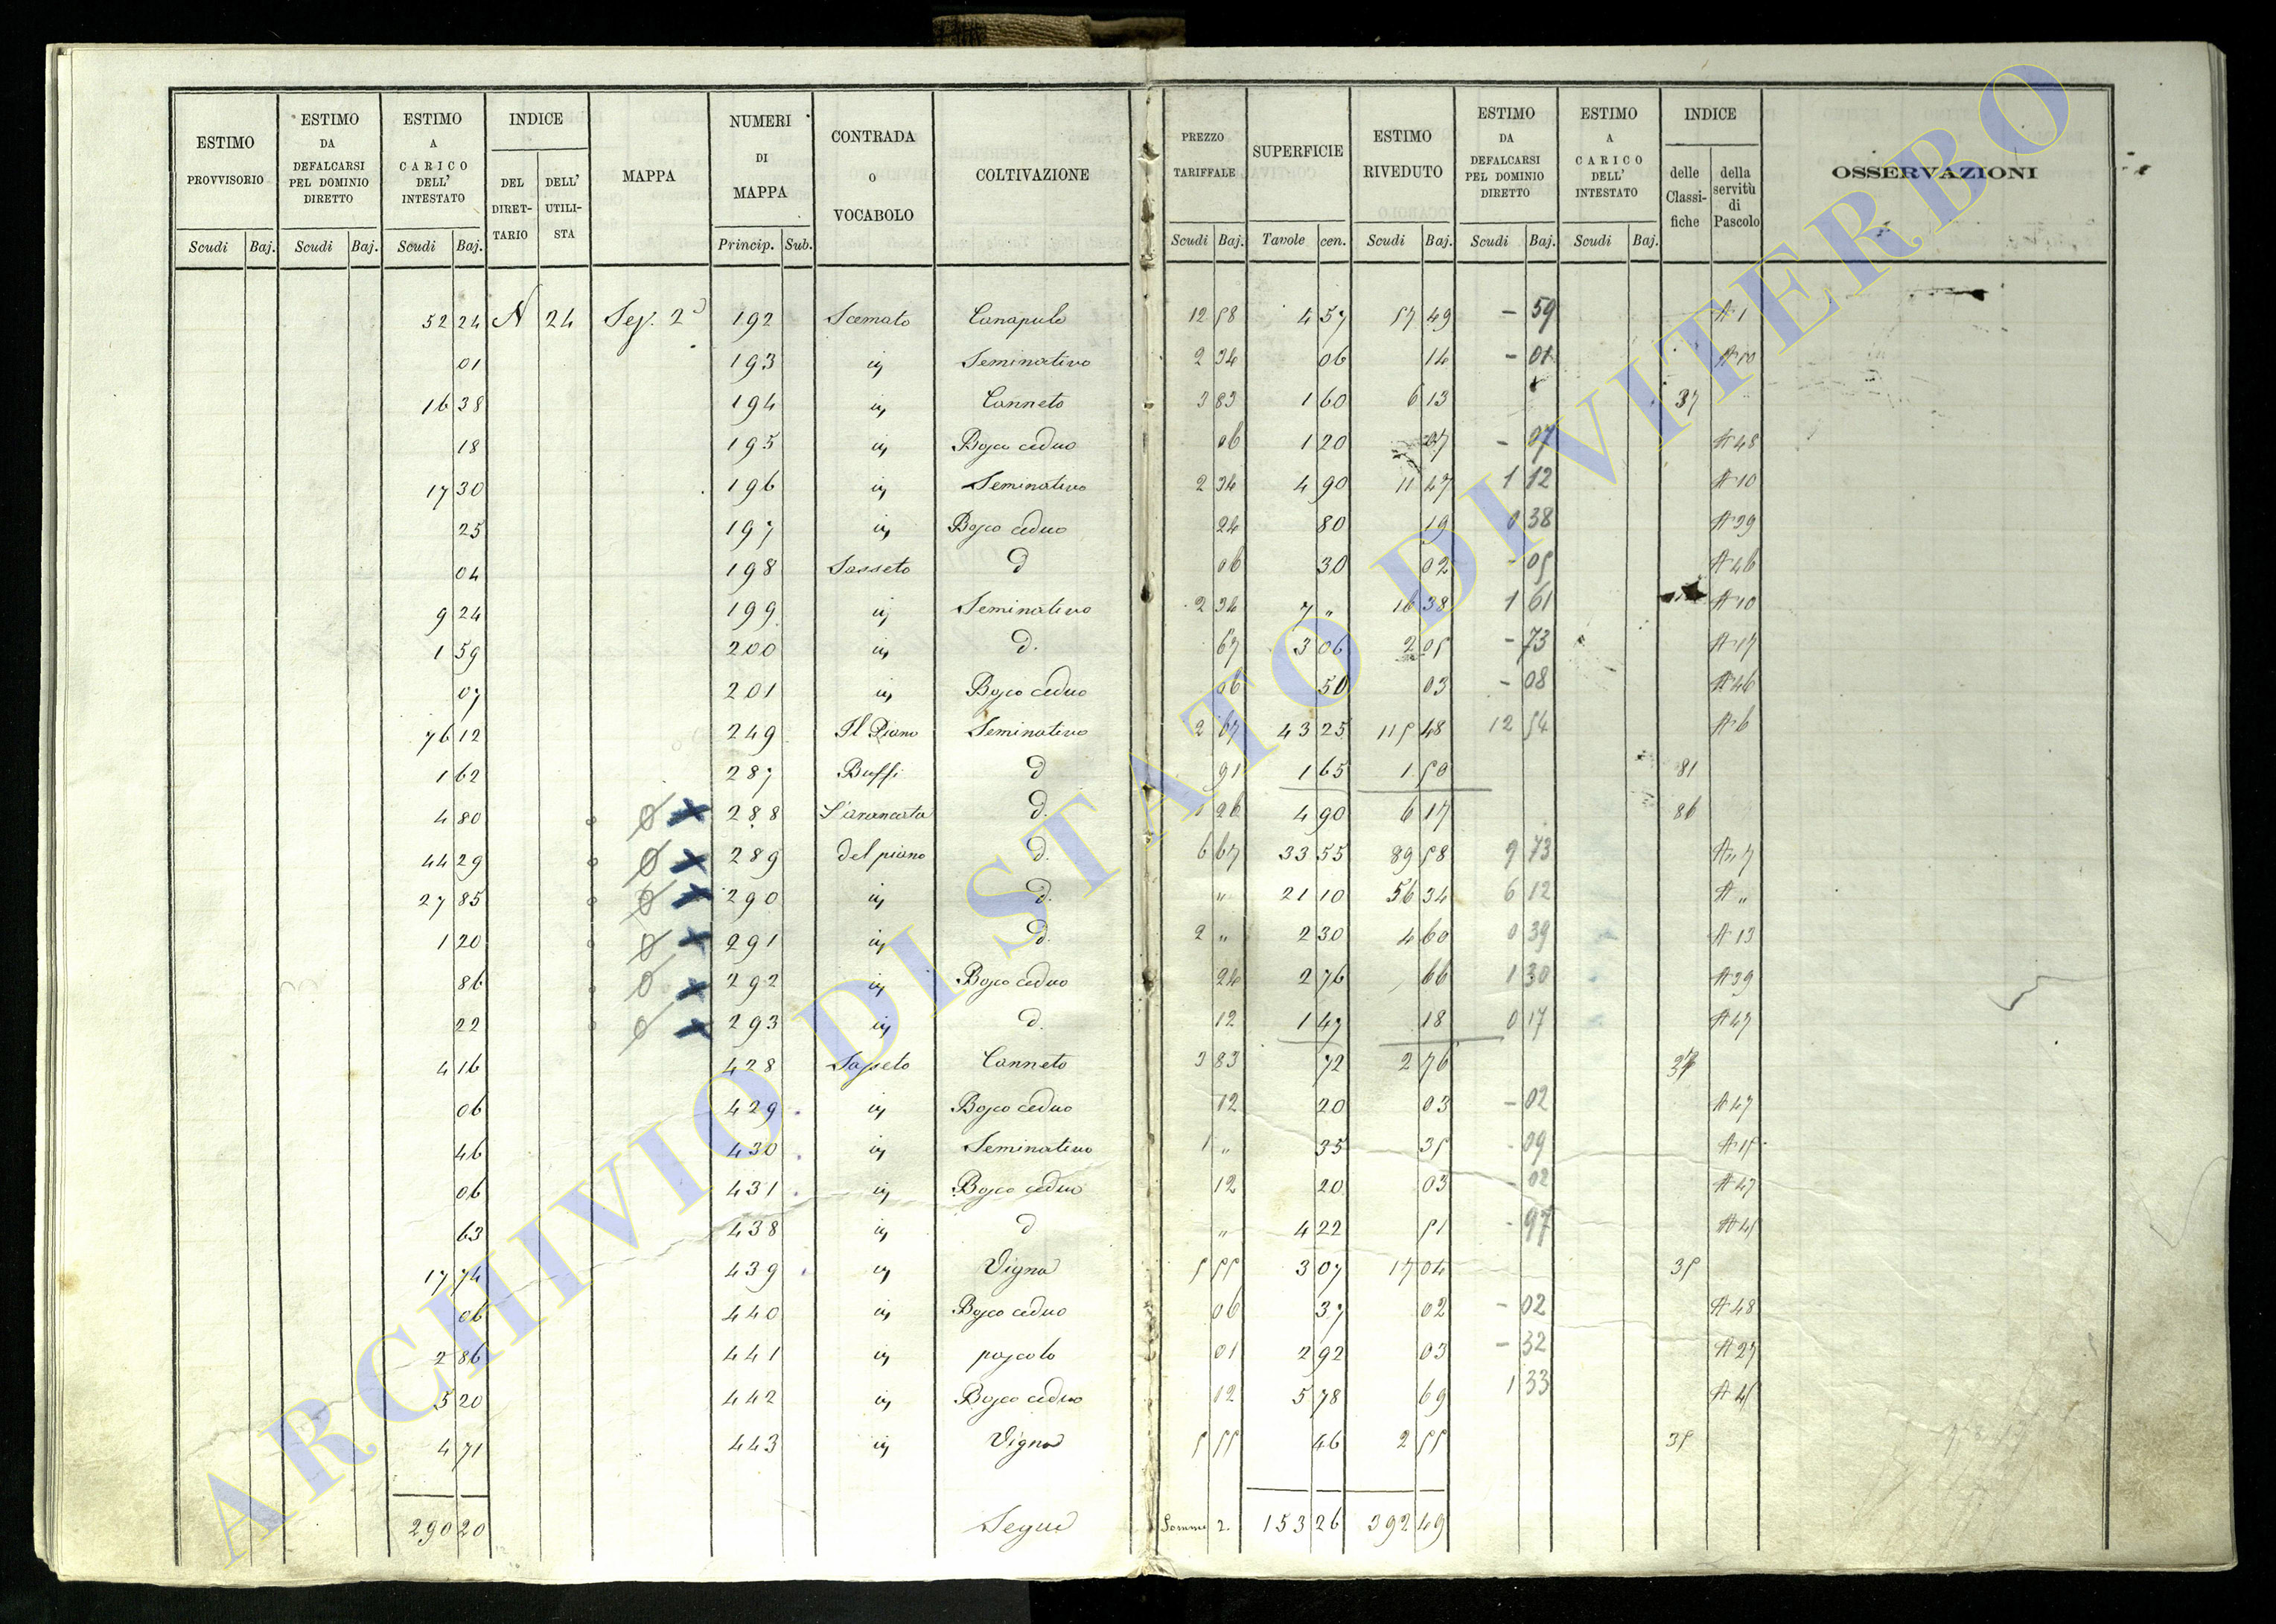 ESTIMO PROVVISORIO | ESTIMO DA DEFALCARSI PEL DOMINIO DIRETTO | ESTIMO A CARICO DELL' INTESTATO | INDICE DEL DIRET-TARIO | DELL' UTILI-STA | MAPPA | NUMERI DI MAPPA | CONTRADA O VOCABOLO | COLTIVAZIONE | PREZZO TARIFFALE | SUPERFICIE | ESTIMO RIVEDUTO | ESTIMO DA DEFALCARSI PEL DOMINIO DIRETTO | ESTIMO A CARICO DELL' INTESTATO | INDICE delle Classi-fiche | della servitù di Pascolo | OSSERVAZIONI
Scudi Baj. | Scudi Baj. | Scudi Baj. | Princip. Sub. | Scudi Baj. | Tavole cen. | Scudi Baj. | Scudi Baj. | Scudi Baj.
52 24 N 24 Sez. 2 192 Scemato Canapule 12 58 4 57 57 49 - 59 A 1
01 193 iv Seminativo 2 34 06 14 - 01 A 10
16 38 194 iv Canneto 3 83 1 60 6 13 37
18 195 iv Bosco ceduo 06 1 20 07 - 07 A 48
17 30 196 iv Seminativo 2 34 4 90 11 47 1 12 A 10
25 197 iv Bosco ceduo 24 80 19 0 38 A 39
04 198 Sasseto d 06 30 02 - 05 A 46
9 24 199 iv Seminativo 2 34 7 " 16 38 1 61 A 10
1 59 200 iv d. 67 3 06 2 05 - 73 A 17
07 201 iv Bosco ceduo 06 50 03 - 08 A 46
76 12 249 Il Piano Seminativo 2 67 43 25 115 48 12 54 A 6
1 62 287 Buffi d 91 1 65 1 50 81
4 80 288 d. 1 26 4 90 6 17 86
44 29 289 del piano d. 6 67 33 55 89 58 9 73 A " 7
27 85 290 iv d. " 21 10 56 34 6 12 A "
1 20 291 iv d. 2 " 2 30 4 60 0 39 A 13
86 292 iv Bosco ceduo 24 2 76 66 1 30 A 39
22 293 iv d. 12 1 47 18 0 17 A 47
4 16 428 Sasseto Canneto 3 83 72 2 76 37
06 429 iv Bosco ceduo 12 20 03 - 02 A 47
46 430 iv Seminativo 1 " 35 35 - 09 A 15
06 431 iv Bosco ceduo 12 20 03 - 02 A 47
63 438 iv d " 4 22 51 - 97 A 45
17 74 439 iv Vigna 5 55 3 07 17 04 35
06 440 iv Bosco ceduo 06 37 02 - 02 A 48
2 86 441 iv pascolo 01 2 92 03 - 32 A 27
5 20 442 iv Bosco ceduo 12 5 78 69 1 33 A 45
4 71 443 iv Vigna 5 55 46 2 55 35
290 20 Segue Somma 2. 153 26 392 49
ARCHIVIO DI STATO DI VITERBO